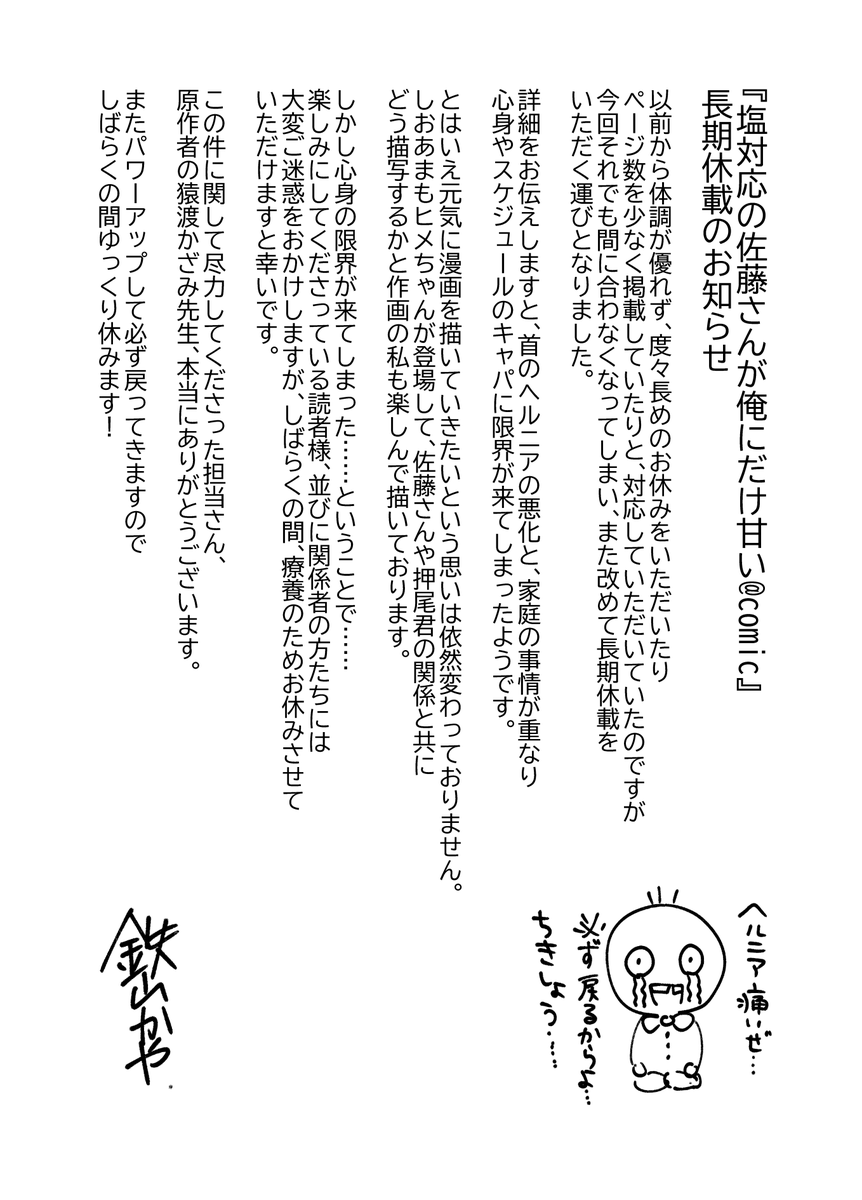 『塩対応の佐藤さんが俺にだけ甘い@comic』
長期休載のお知らせ
以前から体調が優れず、度々長めのお休みをいただいたり
ページ数を少なく掲載していたりと、対応していただいていたのですが
今回それでも間に合わなくなってしまい、また改めて長期休載を
いただく運びとなりました。
詳細をお伝えしますと、首のヘルニアの悪化と、家庭の事情が重なり
心身やスケジュールのキャパに限界が来てしまったようです。
とはいえ元気に漫画を描いていきたいという思いは依然変わっておりません。
しおあまもヒメちゃんが登場して、佐藤さんや押尾君の関係と共に
どう描写するかと作画の私も楽しんで描いております。
しかし心身の限界が来てしまった……ということで……
楽しみにしてくださっている読者様、並びに関係者の方たちには
大変ご迷惑をおかけしますが、しばらくの間、療養のためお休みさせて
いただけますと幸いです。
この件に関して尽力してくださった担当さん、
原作者の猿渡かざみ先生、本当にありがとうございます。
またパワーアップして必ず戻ってきますので
しばらくの間ゆっくり休みます！
ヘルニア痛いぜ…
必ず戻るからよ…
ちきしょう……
鉄山かや